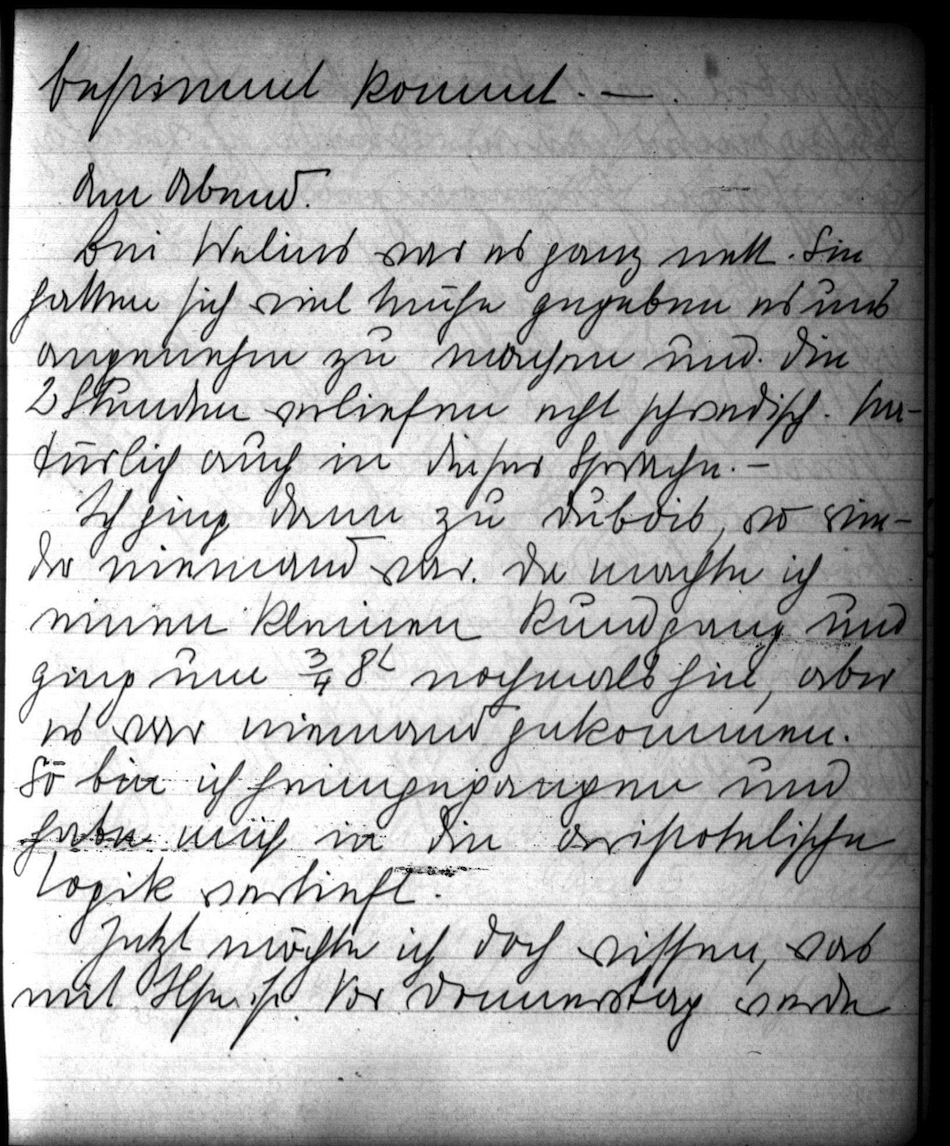 bestimmt kommt. —
Am Abend.
Bei Welins war es ganz nett. Sie
hatten sich viel Mühe gegeben es uns
angenehm zu machen und die
2 Stunden verliefen echt schwedisch. Na-
türlich auch in dieser Sprache. —
Ich ging dann zu Dubois, wo wie-
der niemand war. Da machte ich
einen kleinen Rundgang und
ging um ¾ 8 nochmals hin, aber
es war niemand gekommen.
So bin ich heimgegangen und
habe mich in die aristotelische
Logik vertieft.
Jetzt möchte ich doch wissen, was
mit ist. Vor Donnerstag werde